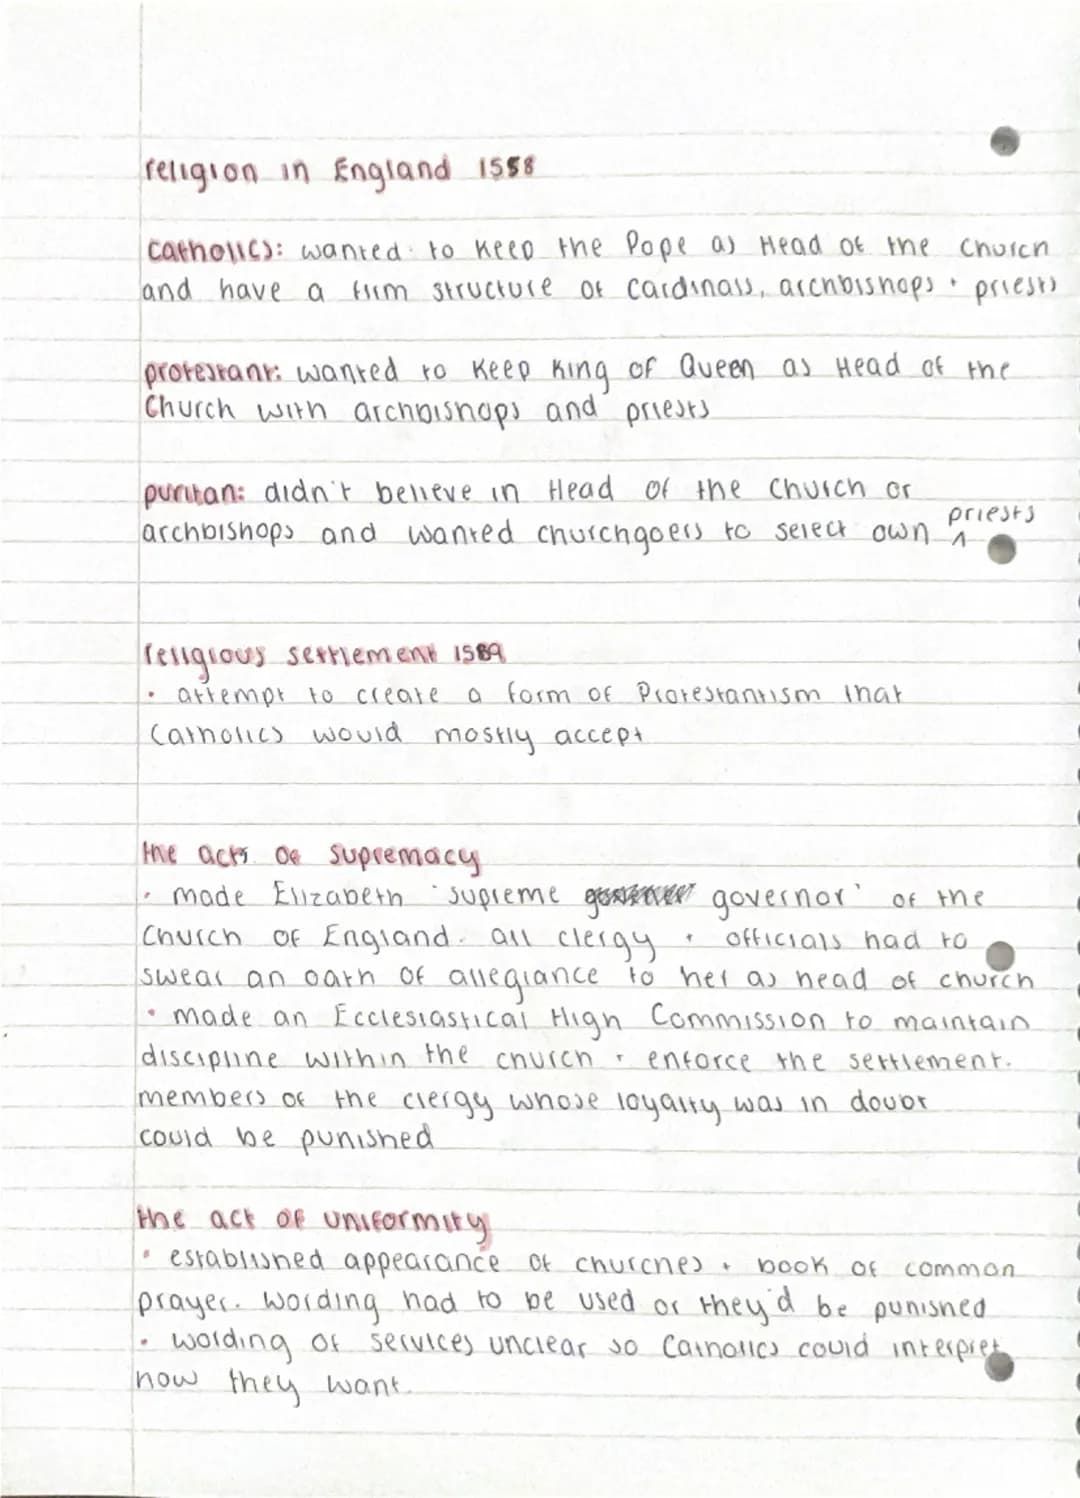 religion in England 1558
Catholics: wanted to keep the Pope as Head of the Church
and have a firm structure of cardinals, archbishops + priests
protestant: wanted to keep King of Queen as Head of the
Church with archbishops and priests
puritan: didn't believe in Head of the Church or
archbishops and wanted churchgoers to select own priests
religious settlement 1559
• attempt to create a form of Protestantism that
Catholics would mostly accept
the acts of supremacy
• made Elizabeth 'supreme governor' of the
Church of England. all clergy + officials had to
swear an oath of allegiance to her as head of church
• made an Ecclesiastical High Commission to maintain
discipline within the church + enforce the settlement.
members of the clergy whose loyalty was in doubt
could be punished
the act of uniformity
• established appearance of churches + book of common
prayer. Wording had to be used or they'd be punished
• wording of services unclear so Catholics could interpret
how they want.